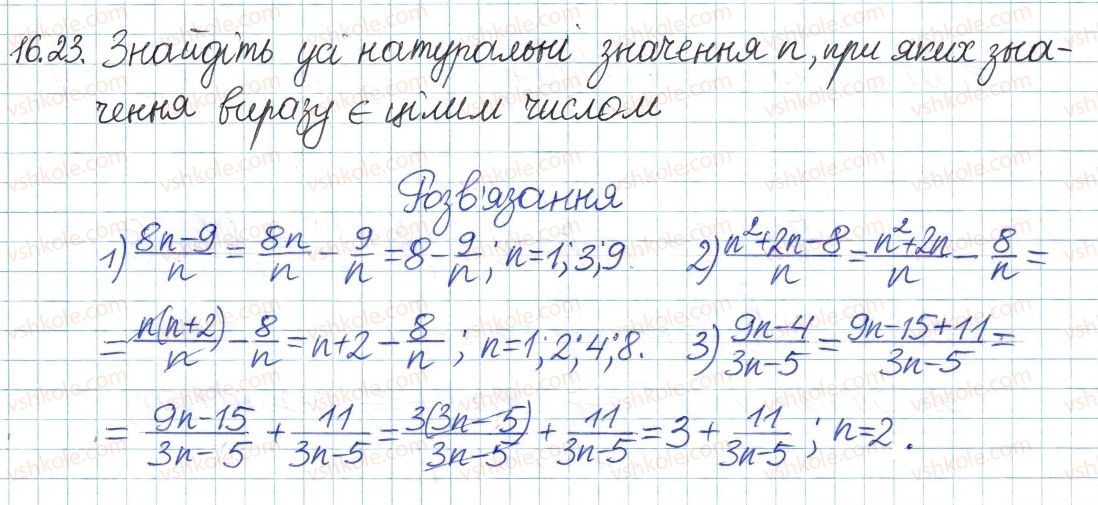 16.23. Знайдіть усі натуральні значення n, при яких зна-
чення виразу є цілим числом
Розв'язання
1) (8n-9)/n = 8n/n - 9/n = 8 - 9/n; n=1; 3; 9. 2) (n²+2n-8)/n = (n²+2n)/n - 8/n =
= n(n+2)/n - 8/n = n+2 - 8/n; n=1; 2; 4; 8. 3) (9n-4)/(3n-5) = (9n-15+11)/(3n-5) =
= (9n-15)/(3n-5) + 11/(3n-5) = 3(3n-5)/(3n-5) + 11/(3n-5) = 3 + 11/(3n-5); n=2.
vshkole.com